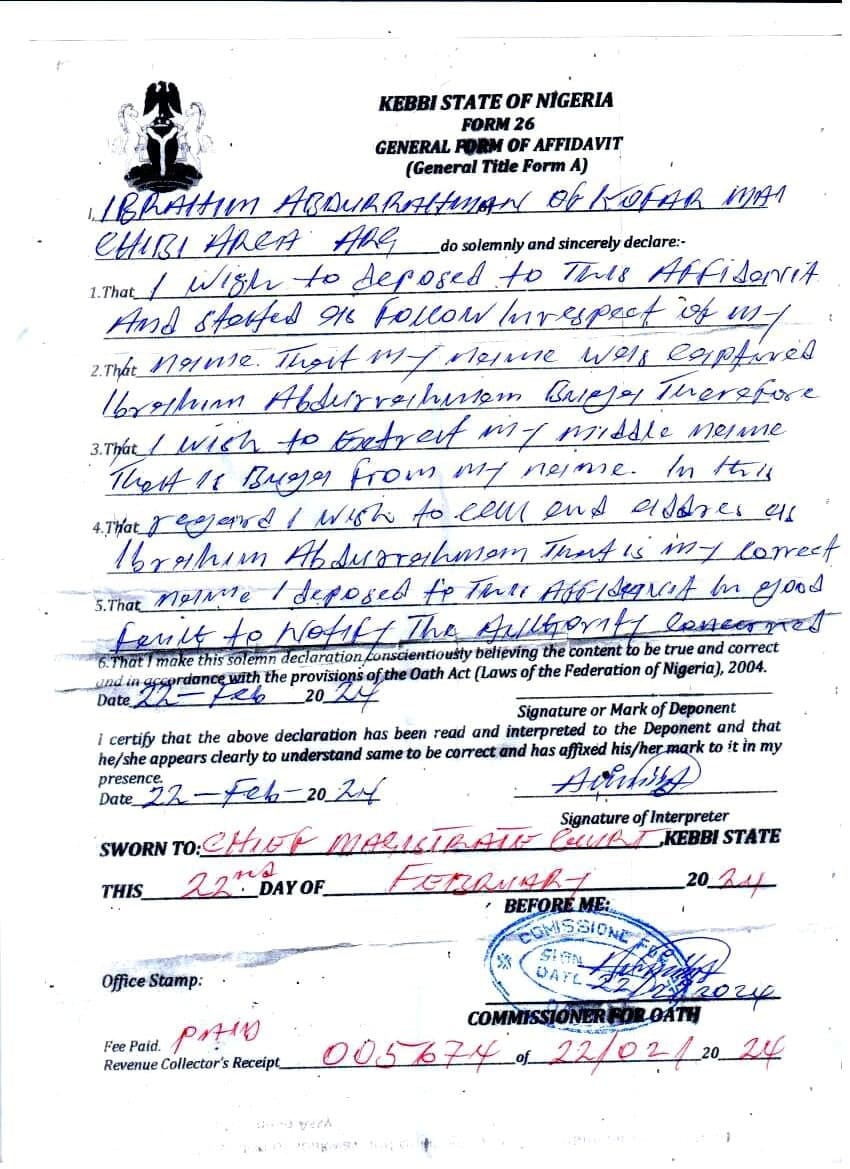 KEBBI STATE OF NIGERIA
FORM 26
GENERAL FORM OF AFFIDAVIT
(General Title Form A)
I, IBRAHIM ABDURRAHMAN Of KOFAR MAI
CHIBI AREA ARG do solemnly and sincerely declare:-
1.That I wish to deposed to This Affidavit
And stated as Follow Inrespect of my
2.That name. That my name was Captured
Ibrahim Abdurrahman Buga Therefore
3.That I wish to Extract my middle name
That is Buga From my name. In this
4.That regard I wish to call and addres as
Ibrahim Abdurrahman That is my correct
5.That name I deposed to This Affidavit In good
Faith to Notify The Authority Concerned
6.That I make this solemn declaration conscientiously believing the content to be true and correct
and in accordance with the provisions of the Oath Act (Laws of the Federation of Nigeria), 2004.
Date 22-Feb 20 24
Signature or Mark of Deponent
I certify that the above declaration has been read and interpreted to the Deponent and that
he/she appears clearly to understand same to be correct and has affixed his/her mark to it in my
presence.
Date 22-Feb- 20 24
Signature of Interpreter
SWORN TO: CHIEF MAGISTRATE COURT, KEBBI STATE
THIS 22nd DAY OF FEBRUARY 20 24
BEFORE ME:
COMISSIONE FOR
SIGN
DATE 22/02/2024
Office Stamp:
COMMISSIONER FOR OATH
Fee Paid. PAID
Revenue Collector's Receipt 005674 of 22/02/ 20 24